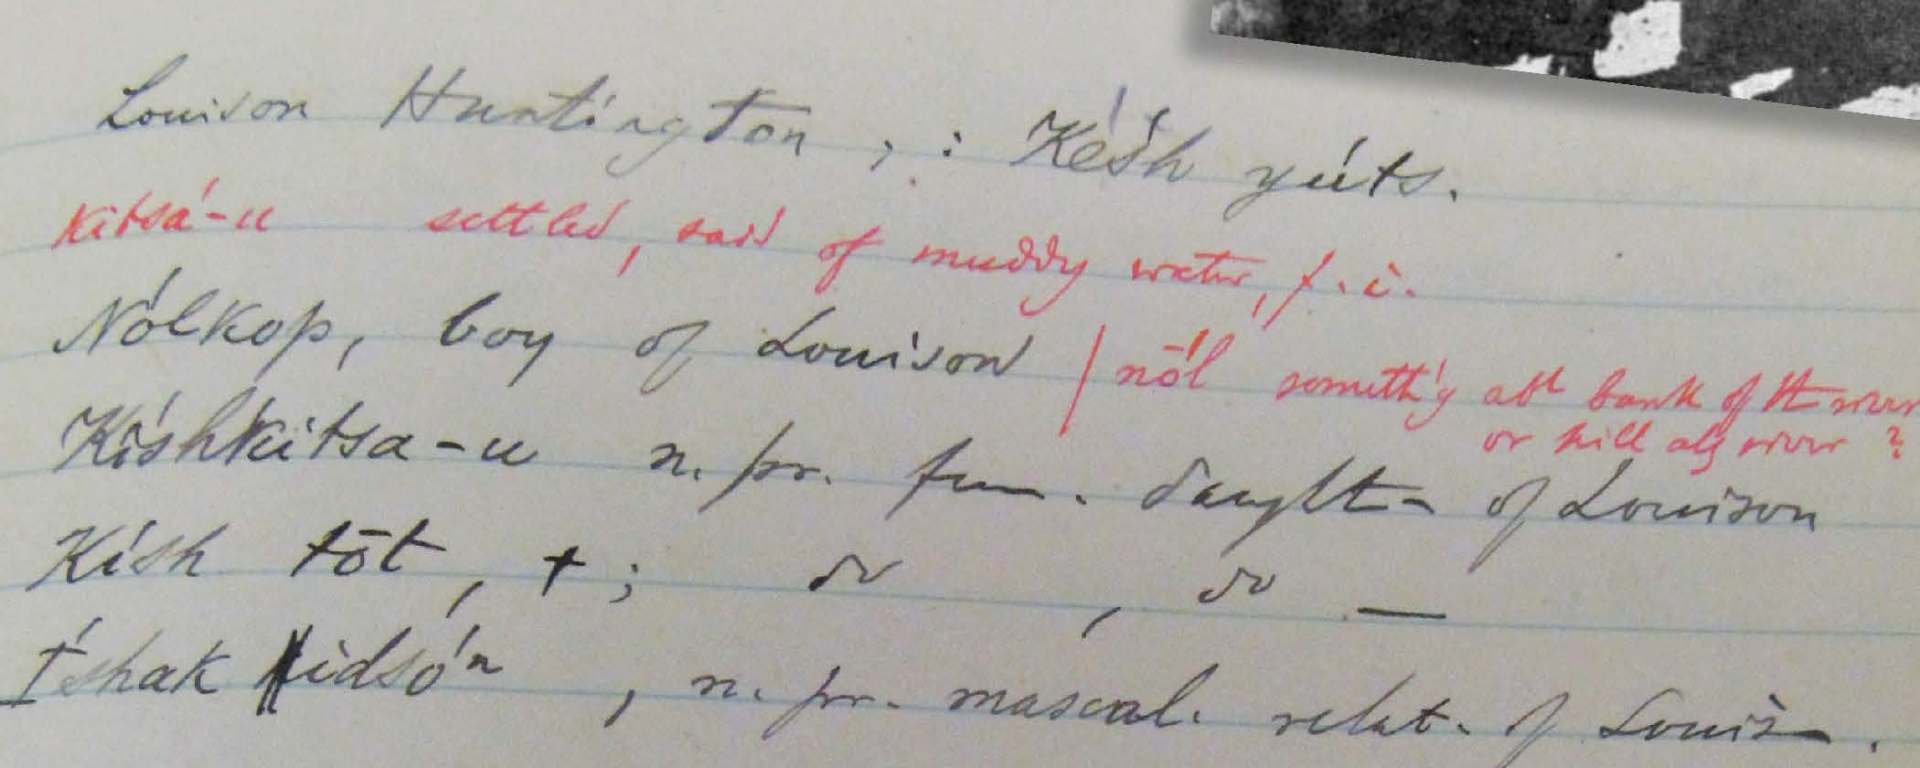 Louison Huntington, : Késh yúts.
kitsá-u settled, said of muddy water, f.i.
Nólkop, boy of Louison | nōl someth'g abt bank of the river
or hill alg river ?
Kíshkitsa-u n. pr. fem. daught- of Louison
Kísh tōt, +; do, do —
Íshak kidsó'n, n. pr. mascul. relat. of Louis—.